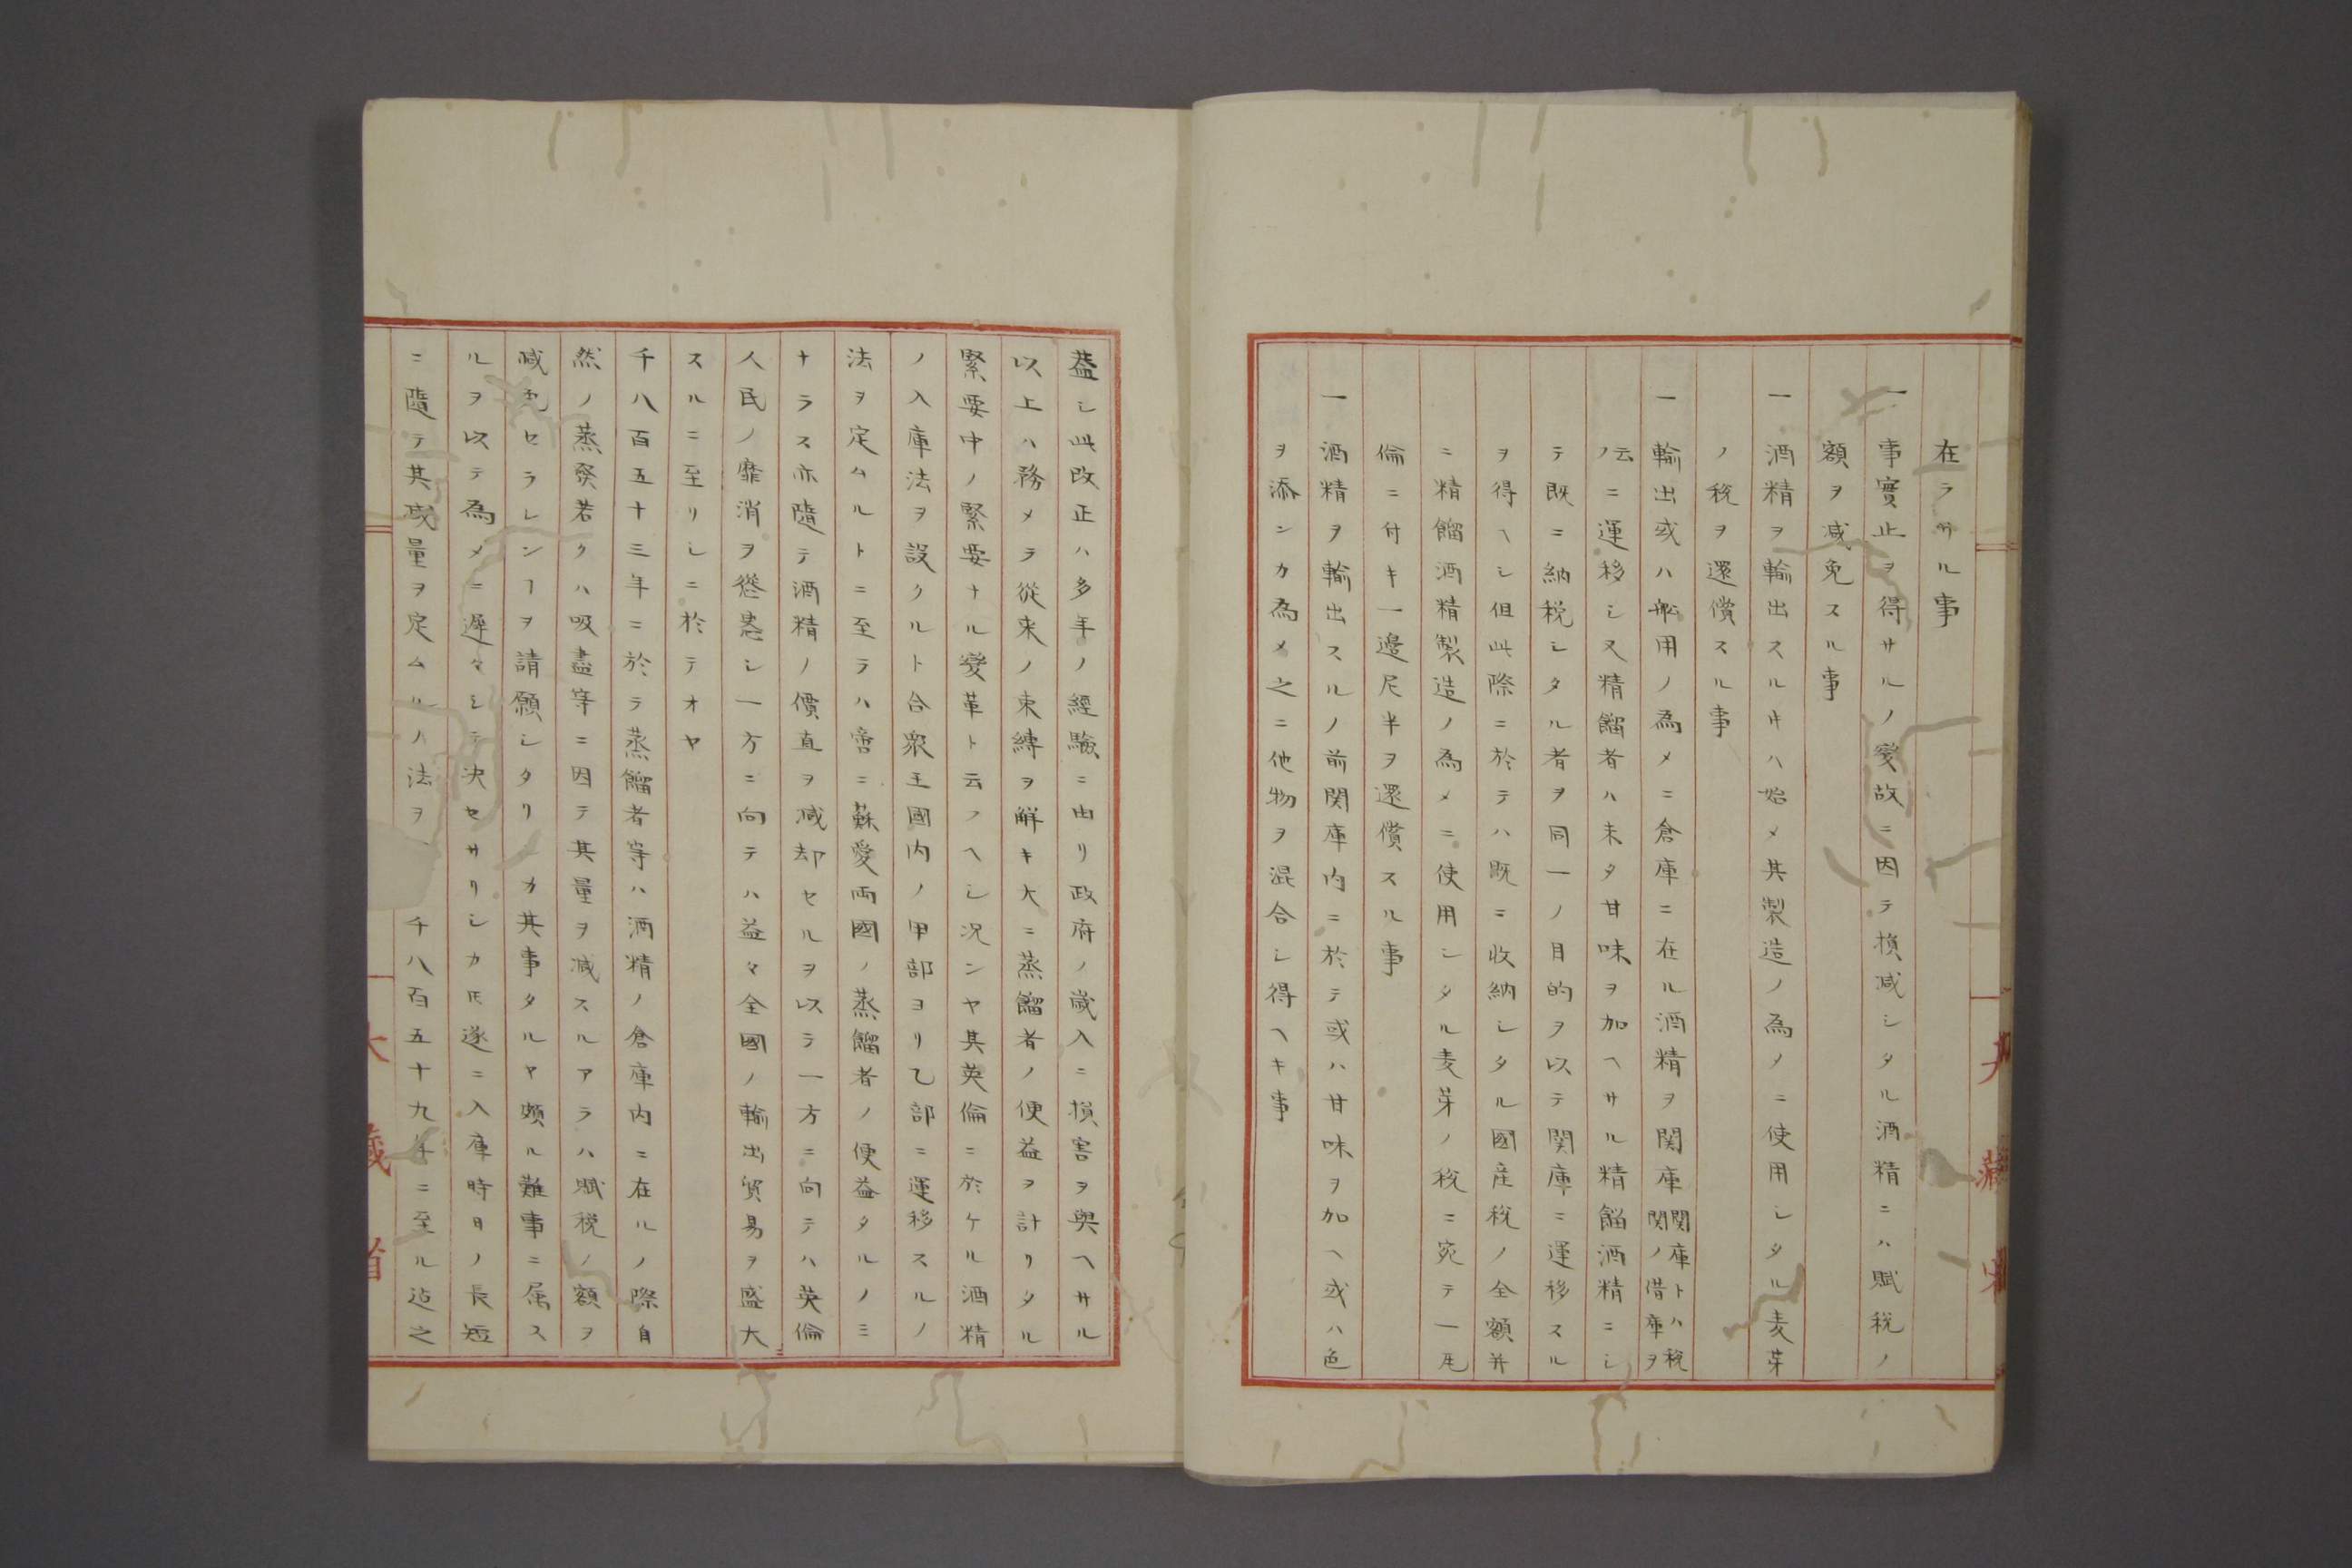 在ラサル事
一事實止ヲ得サルノ変故ニ因テ損減シタル酒精ニハ賦税ノ
額ヲ減免スル事
一酒精ヲ輸出スルキハ始メ其製造ノ為メニ使用シタル麦芽
ノ税ヲ還償スル事
一輸出或ハ舩用ノ為メニ倉庫ニ在ル酒精ヲ関庫関庫トハ税関ノ借庫ヲ
云ノニ運移シ又精餾者ハ未タ甘味ヲ加ヘサル精餾酒精ニシ
テ既ニ納税シタル者ヲ同一ノ目的ヲ以テ関庫ニ運移スル
ヲ得ヘシ但此際ニ於テハ既ニ收納シタル國産税ノ全額并
ニ精餾酒精製造ノ為メニ使用シタル麦芽ノ税ニ宛テ一瓦
倫ニ付キ一邉尼半ヲ還償スル事
一酒精ヲ輸出スルノ前関庫内ニ於テ或ハ甘味ヲ加ヘ或ハ色
ヲ添ンカ為メ之ニ他物ヲ混合シ得ヘキ事
蓋シ此改正ハ多年ノ經驗ニ由リ政府ノ歳入ニ損害ヲ與ヘサル
以上ハ務メテ從来ノ束縛ヲ解キ大ニ蒸餾者ノ便益ヲ計リタル
緊要中ノ緊要ナル変革ト云フヘシ况ンヤ其英倫ニ於ケル酒精
ノ入庫法ヲ設クルト合衆王國内ノ甲部ヨリ乙部ニ運移スルノ
法ヲ定ムルトニ至ラハ啻ニ蘇愛両國ノ蒸餾者ノ便益タルノミ
ナラス亦隨テ酒精ノ價直ヲ减却セルヲ以テ一方ニ向テハ英倫
人民ノ靡消ヲ慫慂シ一方ニ向テハ益々全國ノ輸出貿易ヲ盛大
スルニ至リシニ於テオヤ
千八百五十三年ニ於テ蒸餾者等ハ酒精ノ倉庫内ニ在ルノ際自
然ノ蒸發若クハ吸盡等ニ因テ其量ヲ减スルアラハ賦税ノ額ヲ
减免セラレンヿヲ請願シタリシカ其事タルヤ頗ル難事ニ属ス
ルヲ以テ為メニ遲々シテ决セサリシカ𪜈遂ニ入庫時日ノ長短
ニ隨テ其减量ヲ定ムルノ法ヲ 千八百五十九年ニ至ル迠之
大藏省
大藏省